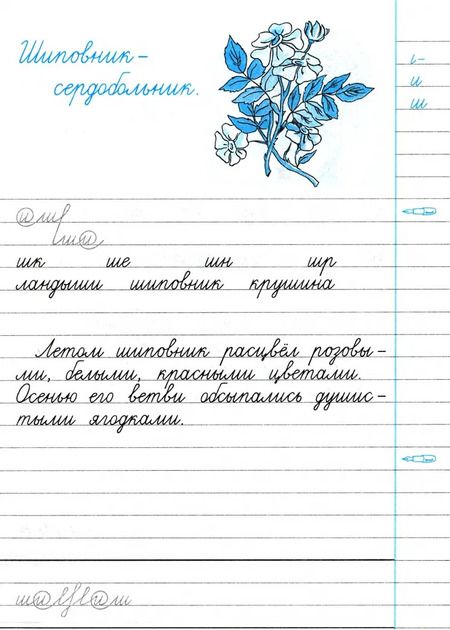 Шиповник –
сердобольник.
и
ш
шк ше шн шр
ландыши шиповник крушина
Летом шиповник расцвёл розовы –
ми, белыми, красными цветами.
Осенью его ветви обсыпались душис –
тыми ягодками.